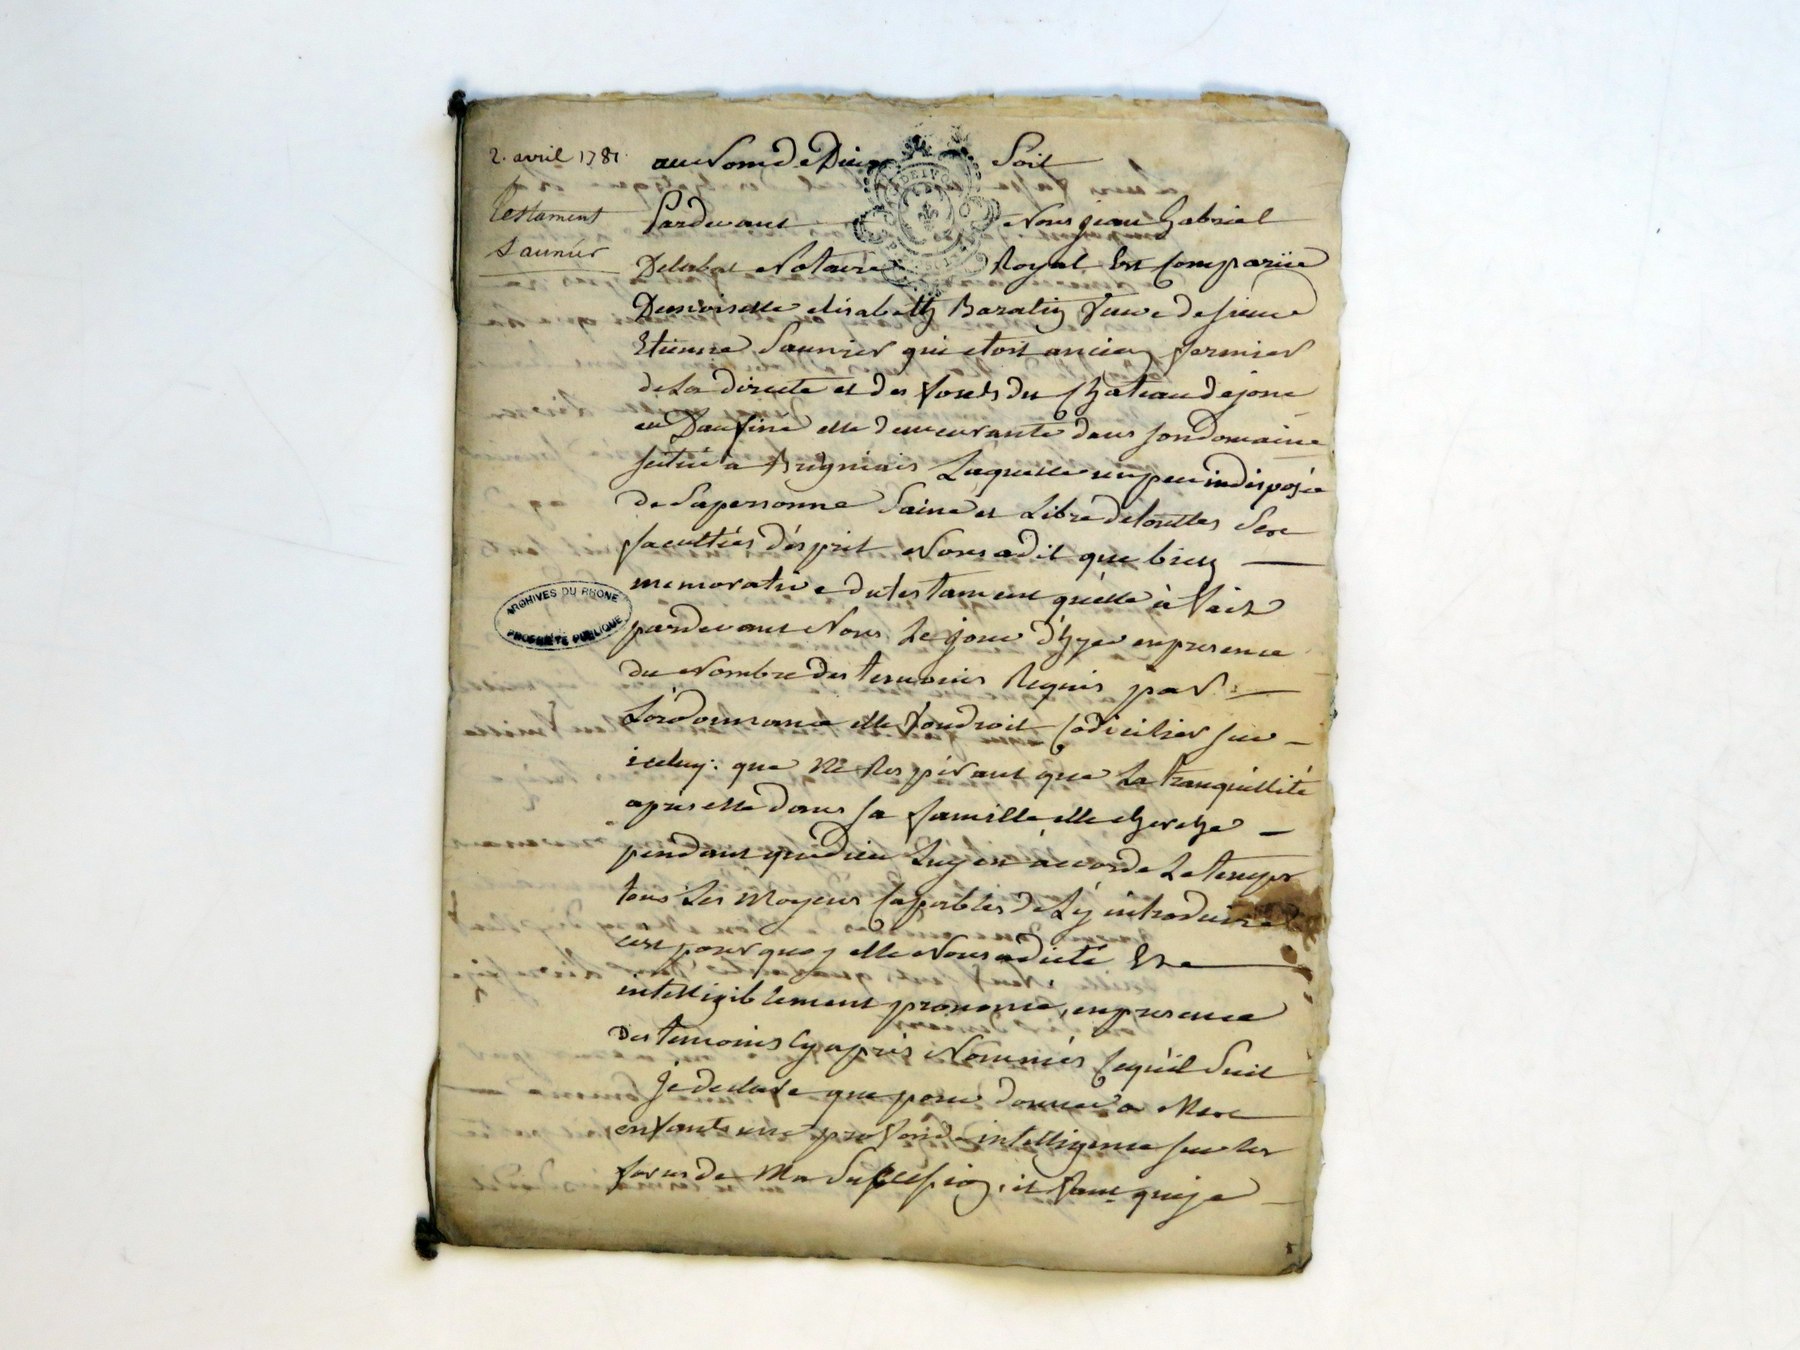 2. avril 1781.
testament
saunier
au Nom de Dieu Soit
Pardevant Nous jean Gabriel
Delabat Notaire Royal Est Comparüe
Demoiselle elisabeth Baratin veuve de sieur
Etienne Saunier qui etoit ancien fermier
de La directe et des fonds du Chateau dejone
en Daufiné elle demeurante dans son Domaine
scitué a Brigniais Laquelle un peu indisposée
de Sa personne Saine et Libre de touttes Ses
facultiés d'ésprit Nous a dit que bien
memorative du testament qu'elle à fait
pardevant Nous Le jour d'hyer en presence
du Nombre des temoins Requis par
L'ordonnance elle voudroit Codiciller sur
iceluy: que Ne Respirant que La tranquillité
apres elle dans sa famille elle cherche
pendant que dieu Luy en accorde Le temps
tous Les Moyens Capables de L'y introduire
cest pourquoy elle Nous a dicté Et
intelligiblement prononcé, en presence
Des temoins Cy après Nommés Ce qu'il Suit
Je declare que pour donner a Mes
enfants une profonde intelligence sur les
forces de Ma Succession, il faut que je
ARCHIVES DU RHONE
PROPRIÉTÉ PUBLIQUE